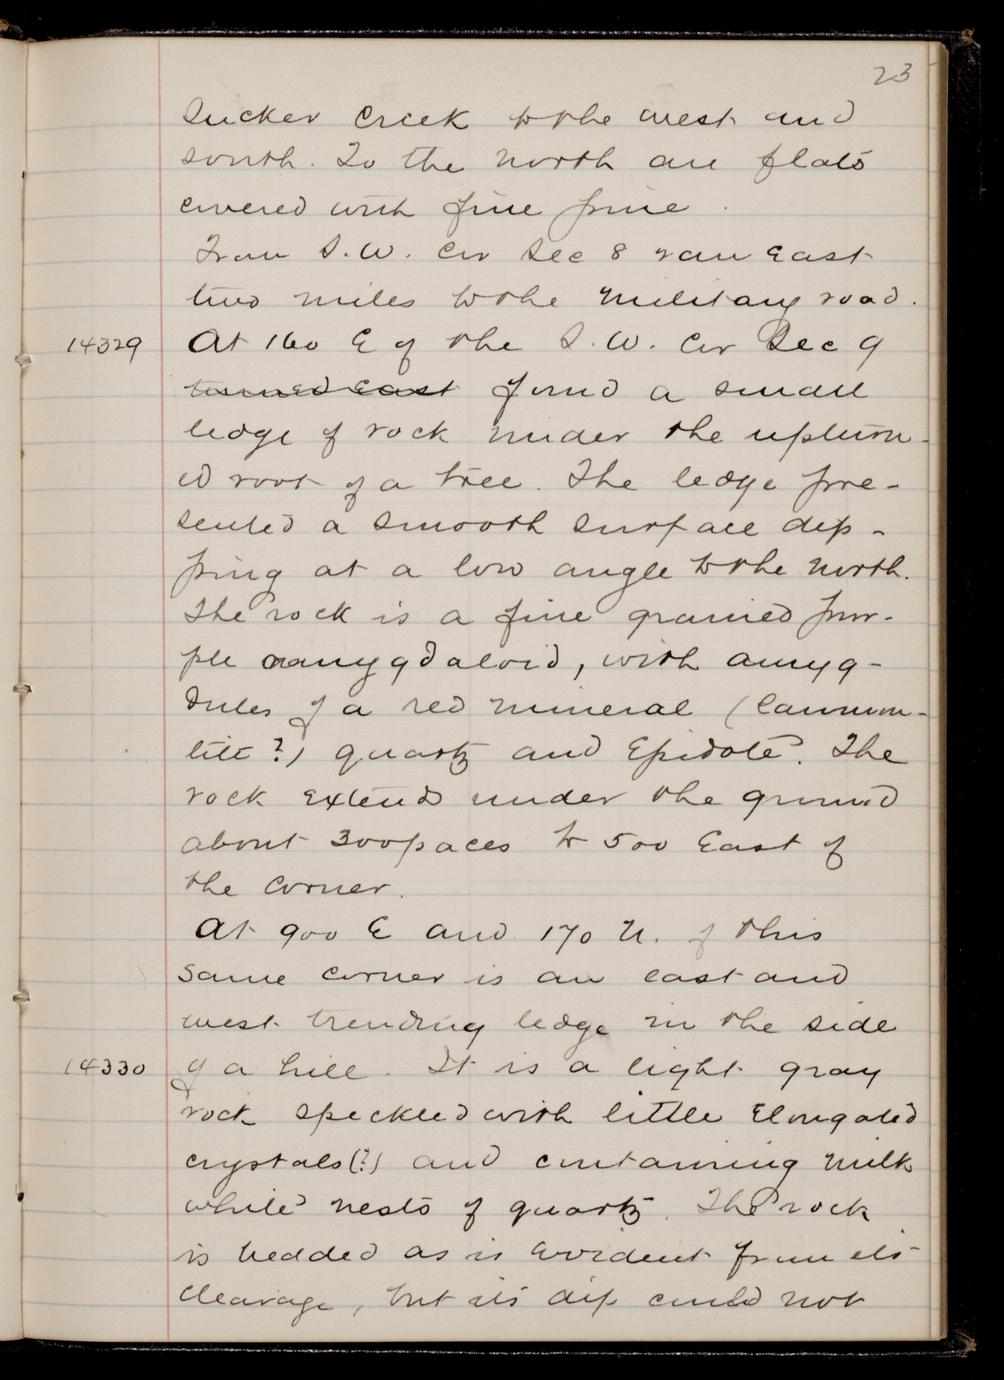 23
Sucker Creek to the west and
south. To the north are flats
covered with fine pine.
From S.W. Cor Sec 8 ran East
two miles to the military road.
14329 At 160 E of the S.W. Cor Sec 9
turned east found a small
ledge of rock under the upturn-
ed root of a tree. The ledge pre-
sented a smooth surface dip-
ping at a low angle to the north.
The rock is a fine grained pur-
ple amygdaloid, with amyg-
dules of a red mineral (laumon-
tite?) quartz and Epidote. The
rock extends under the ground
about 300 paces to 500 East of
the corner.
At 900 E and 170 N. of this
same corner is an east and
west trending ledge in the side
14330 of a hill. It is a light gray
rock speckled with little Elongated
crystals(?) and containing milk
white nests of quartz. The rock
is bedded as is Evident from its
cleavage, but its dip could not